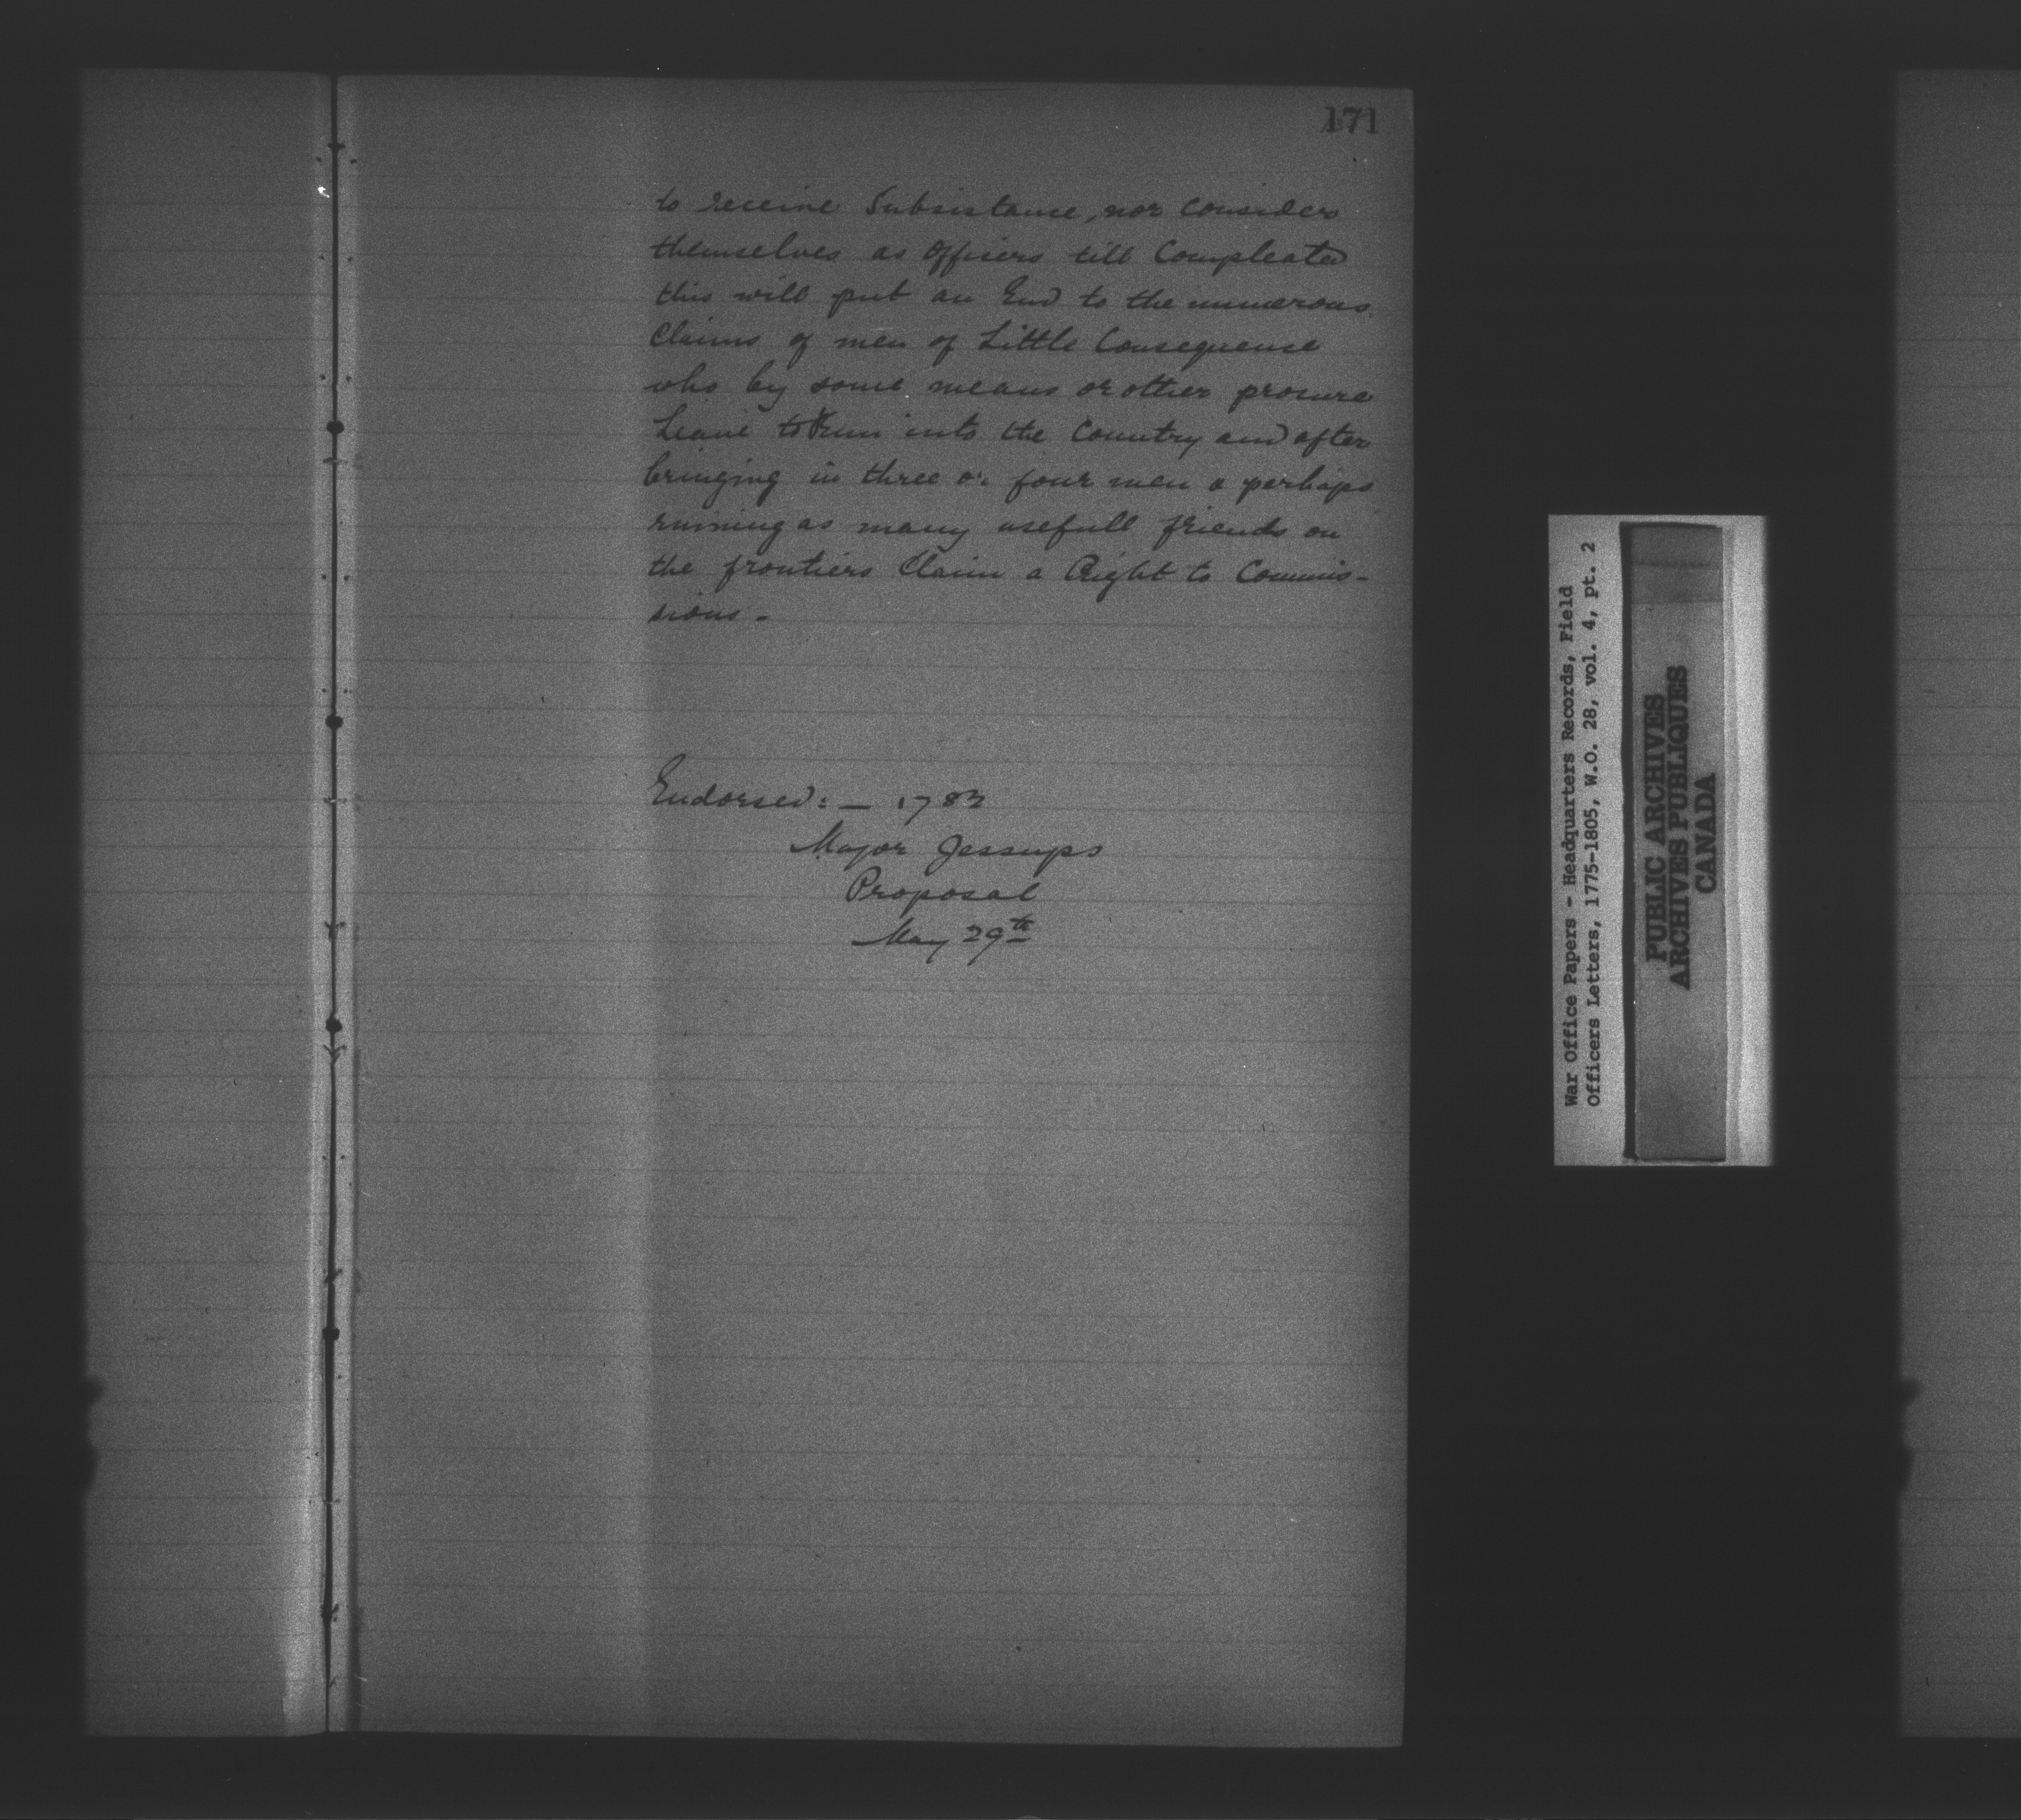 171
to receive Subsistance, nor consider
themselves as Officers till Compleated
this will put an End to the numerous
Claims of men of Little Consequence
who by some means or other procure
Leave to run into the Country and after
bringing in three or four men & perhaps
ruining as many usefull friends on
the frontiers Claim a Right to Commis-
sions -
Endorsed: - 1783
Major Jessups
Proposal
May 29th
War Office Papers - Headquarters Records, Field
Officers Letters, 1775-1805, W.O. 28, vol. 4, pt. 2
PUBLIC ARCHIVES
ARCHIVES PUBLIQUES
CANADA